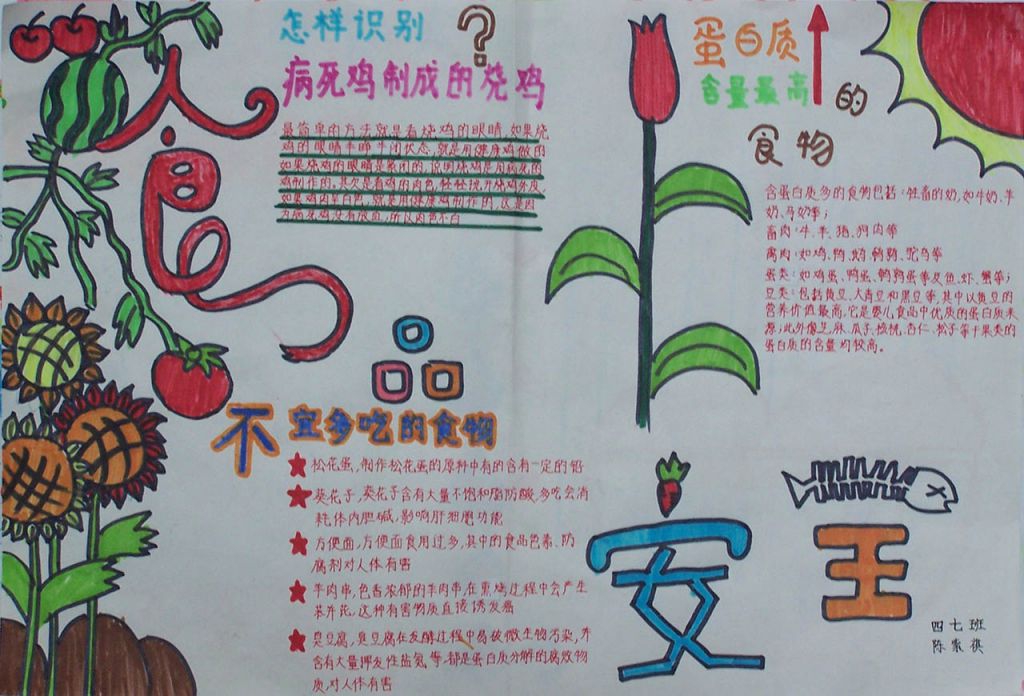 食品安全
怎样识别?
病死鸡制成的烧鸡
最简单的方法就是看烧鸡的眼睛,如果烧
鸡的眼睛半睁半闭状态,就是用健康鸡做的
如果烧鸡的眼睛是紧闭的,说明烧鸡是用病死的
鸡制作的。其次是看鸡的肉色,轻轻挑开烧鸡外皮,
如果鸡肉呈白色,就是用健康鸡制作的,这是因
为病死鸡没有放血,所以肉色不白
蛋白质
含量最高的
食物
含蛋白质多的食物包括:牲畜的奶,如牛奶、羊
奶、马奶等;
畜肉:牛、羊、猪、狗肉等
禽肉:如鸡、鸭、鹅、鹌鹑、驼鸟等
蛋类:如鸡蛋、鸭蛋、鹌鹑蛋等及鱼、虾、蟹等;
豆类:包括黄豆、大青豆和黑豆等,其中以黄豆的
营养价值最高,它是婴儿食品中优质的蛋白质来
源;此外像芝麻、瓜子、核桃、杏仁、松子等干果类的
蛋白质的含量均较高。
不宜多吃的食物
松花蛋,制作松花蛋的原料中有的含有一定的铅
葵花子,葵花子含有大量不饱和脂肪酸,多吃会消
耗体内胆碱,影响肝细胞功能
方便面,方便面食用过多,其中的食品色素、防
腐剂对人体有害
羊肉串,色香浓郁的羊肉串,在熏烤过程中会产生
苯并芘,这种有害物质直接诱发癌
臭豆腐,臭豆腐在发酵过程中易被微生物污染,并
含有大量挥发性盐氨等,都是蛋白质分解的腐败物
质,对人体有害
四七班
陈家祺